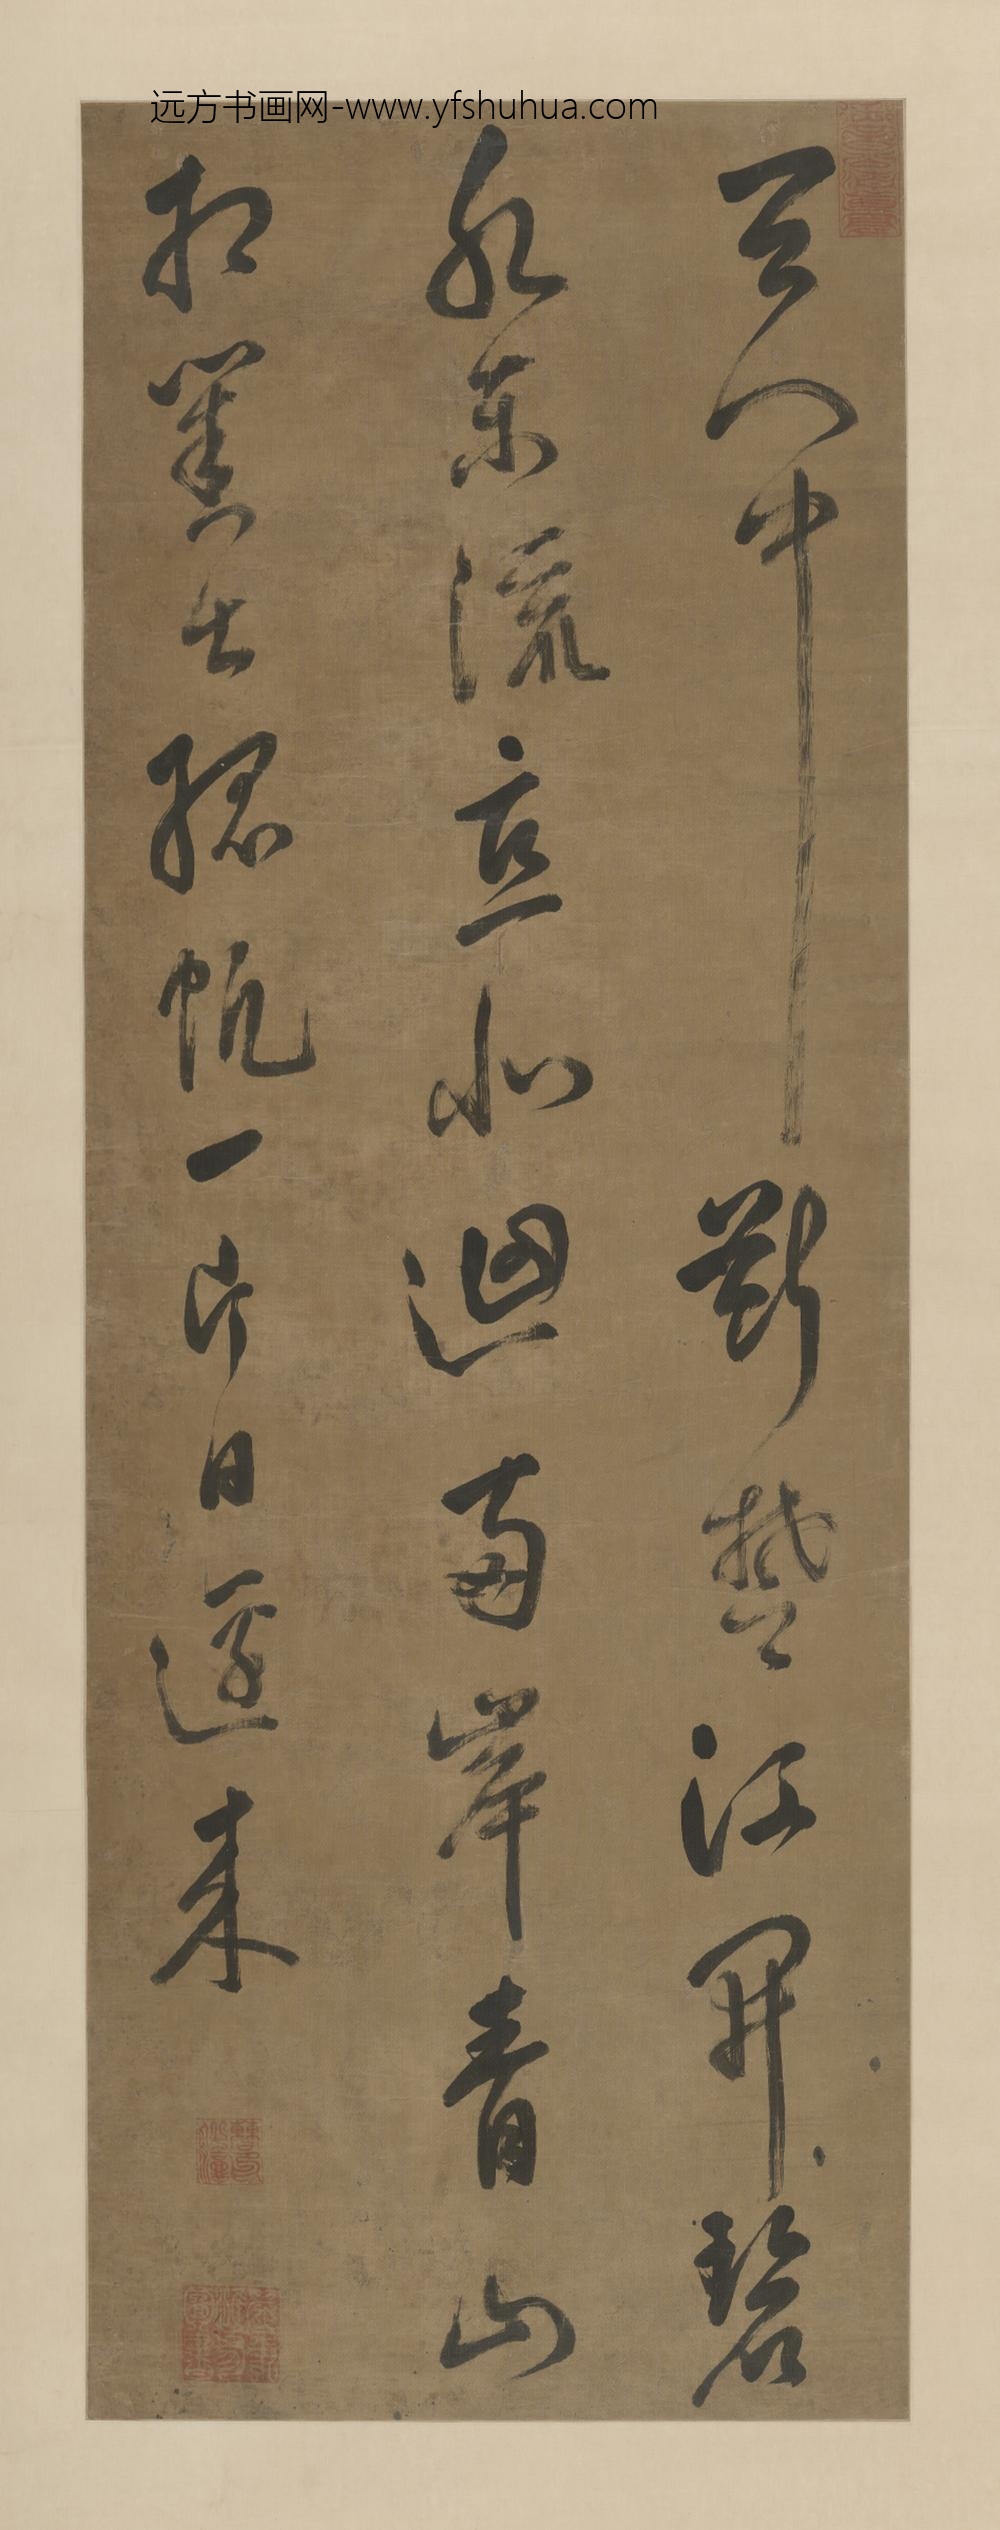 远方书画网-www.yfshuhua.com
天门中断楚江开碧
水东流直北迴两岸青山
相对出孤帆一片日边来